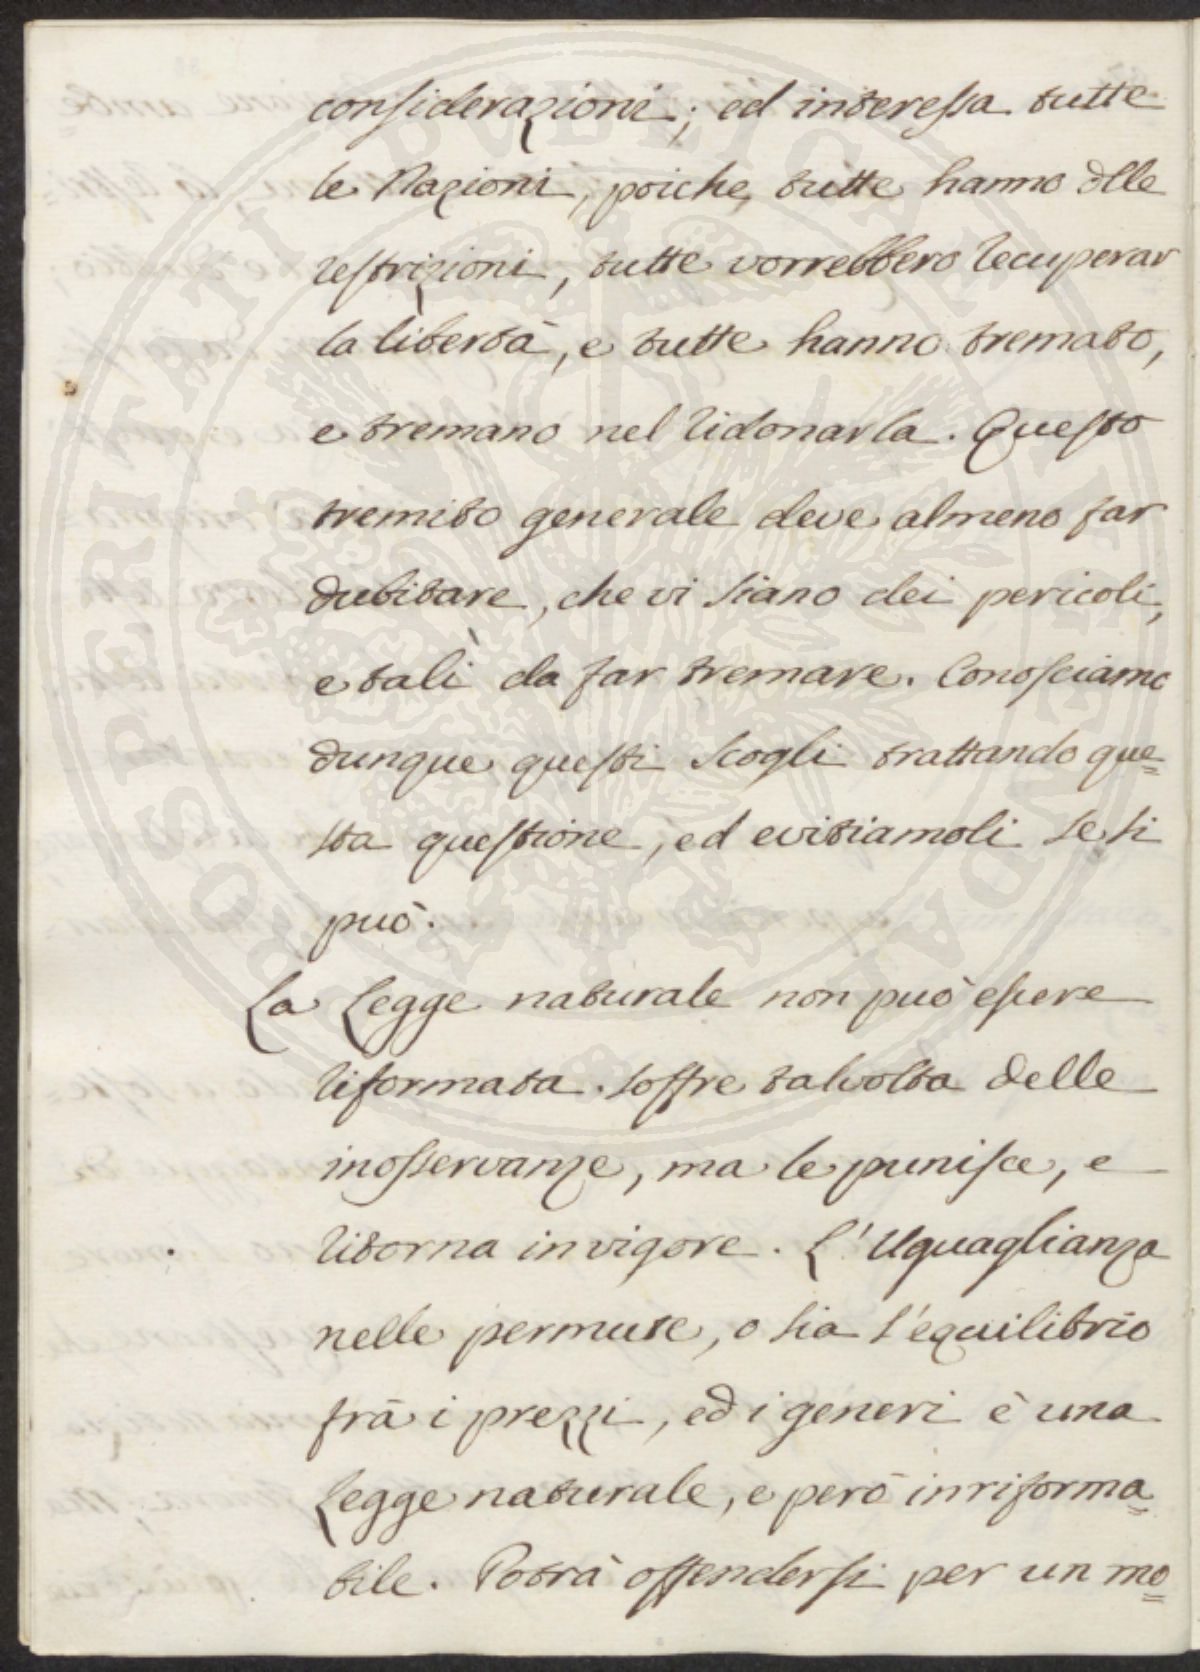 considerazioni; ed interessa tutte
le Nazioni, poiche tutte hanno dlle
restrizioni, tutte vorrebbero recuperar
la libertà, e tutte hanno tremato,
e tremano nel ridonarla. Questo
tremito generale deve almeno far
dubitare, che vi siano dei pericoli,
e tali da far tremare. Conosciamo
dunque questi scogli trattando que=
sta questione, ed evitiamoli se si
può.
La Legge naturale non può essere
riformata. soffre talvolta delle
inosservanze, ma le punisce, e
ritorna in vigore. L'Uguaglianza
nelle permute, o sia l'equilibrio
frà i prezzi, ed i generi è una
Legge naturale, e però inriforma=
bile. Potrà offendersi per un mo=
PROSPERITATI PUBLICAE AUGENDAE